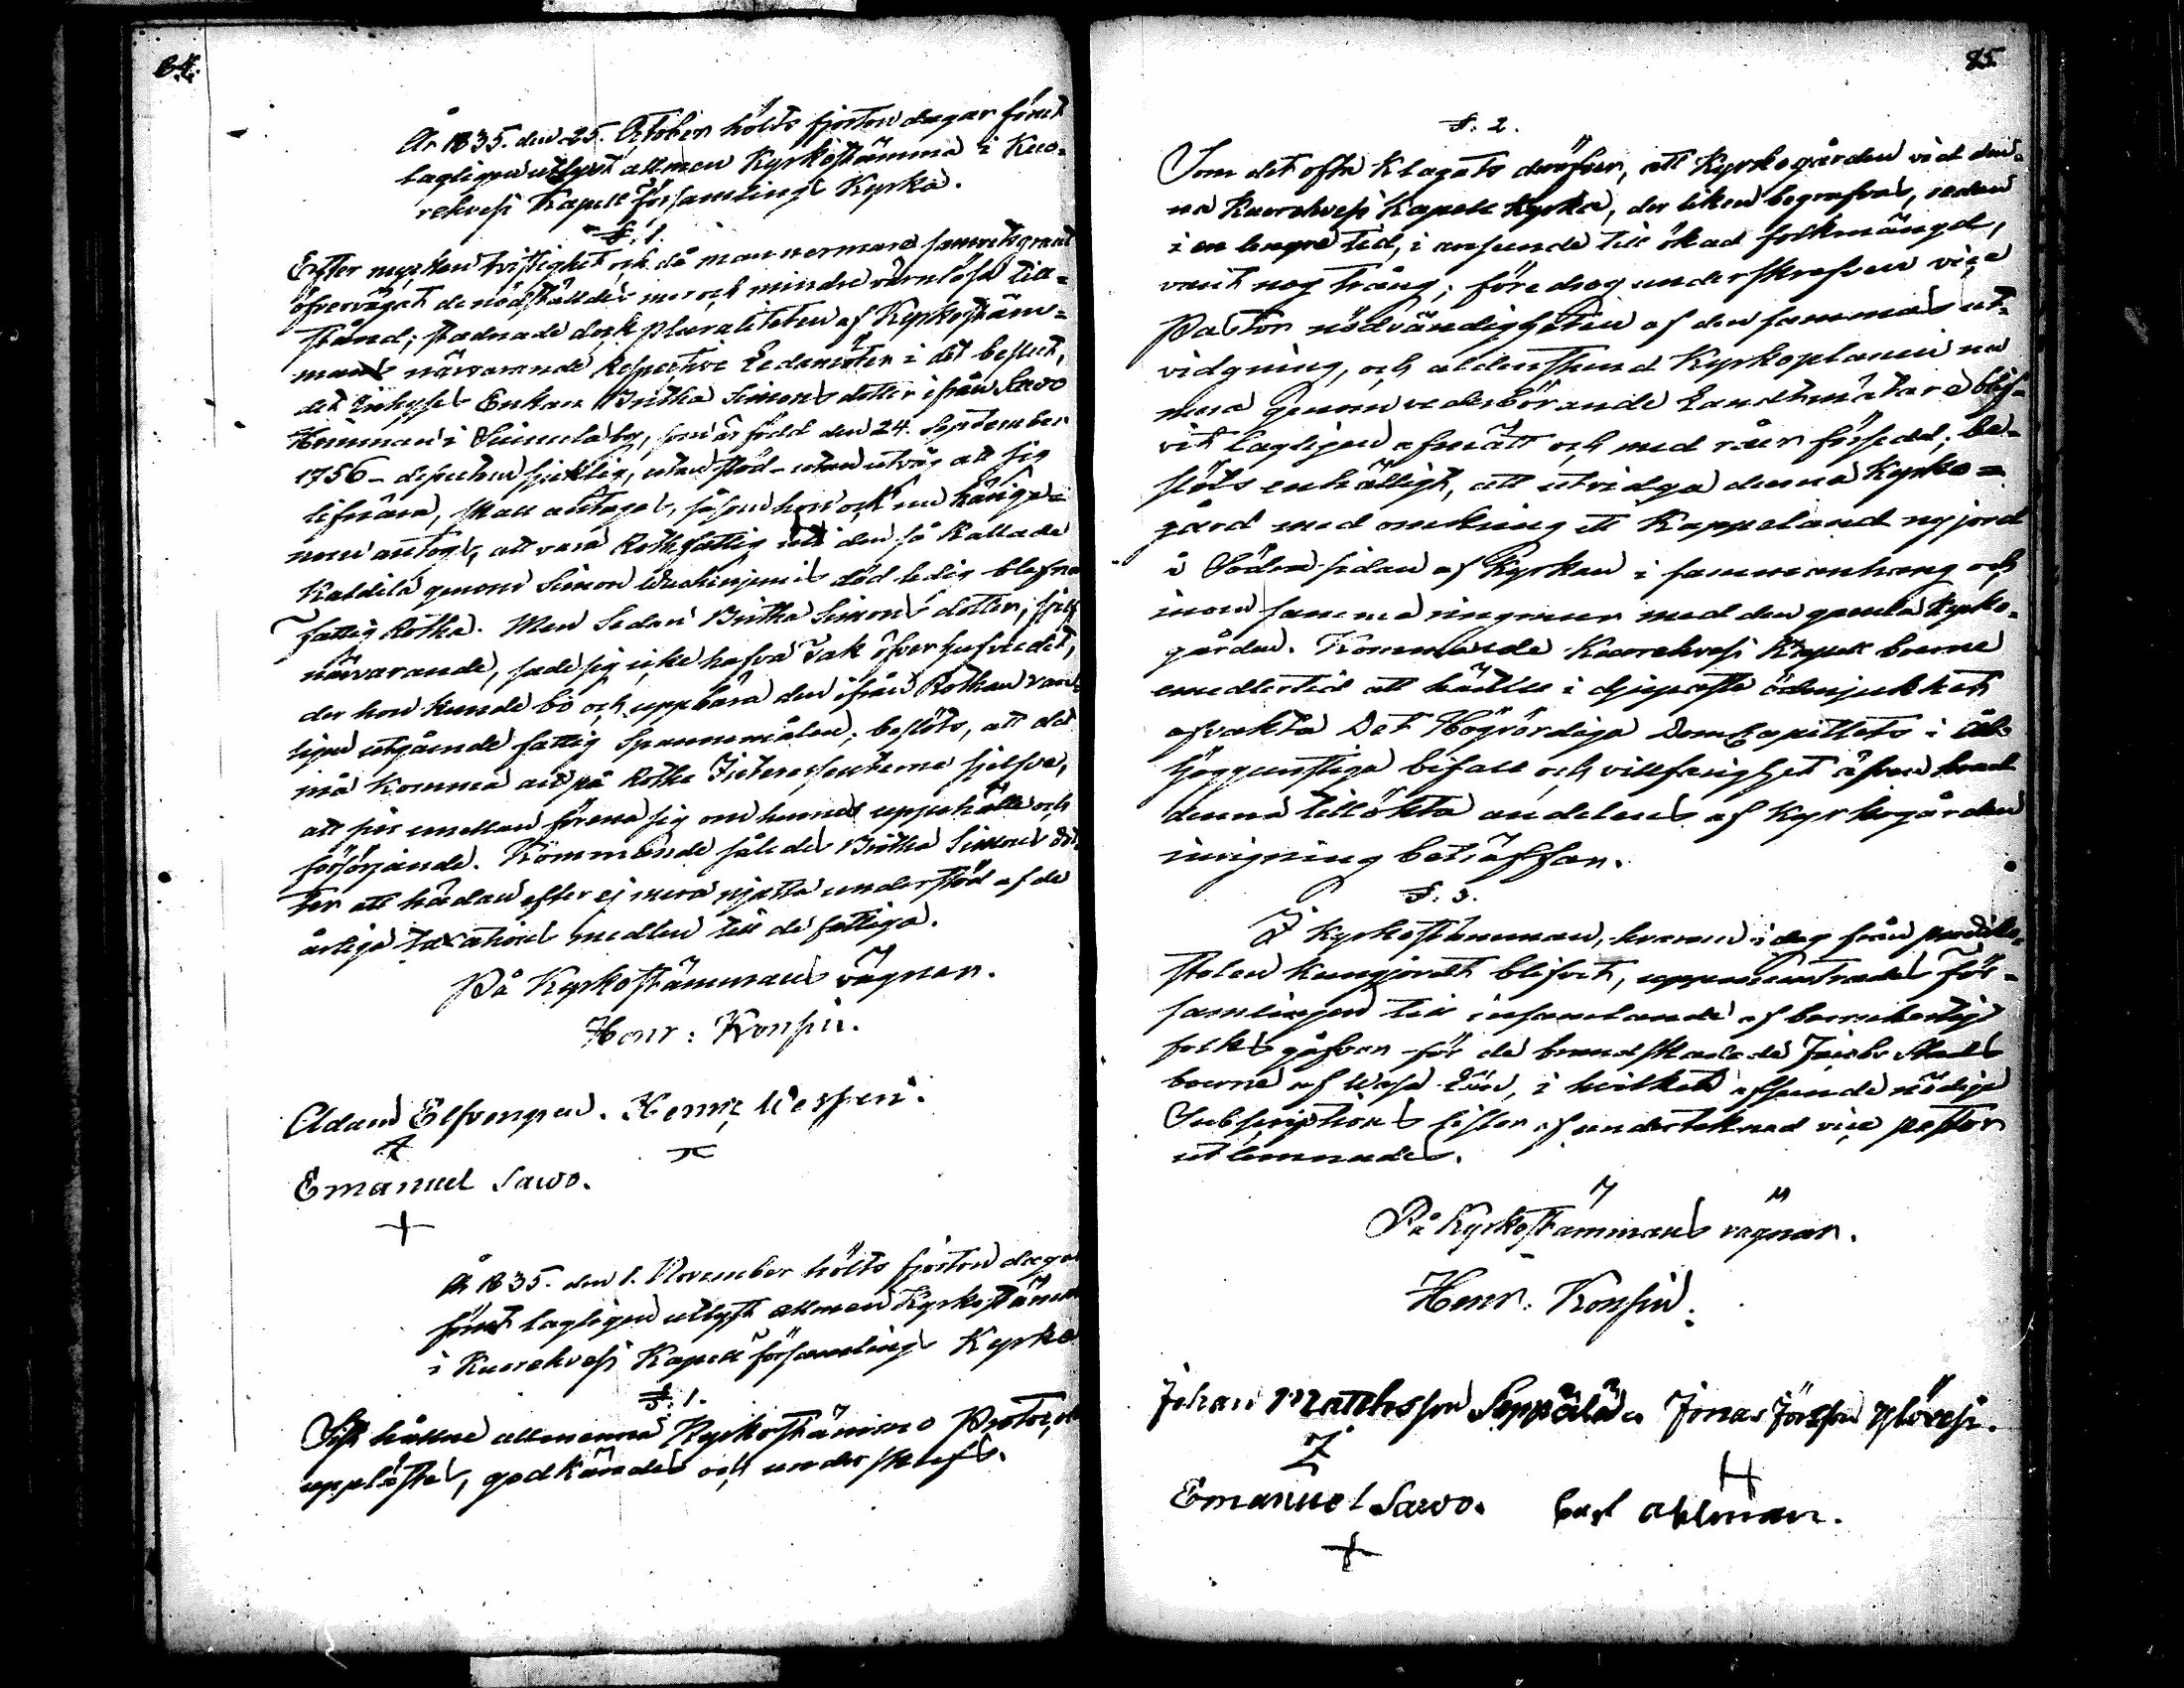 84.
År 1835. den 25. October hölts fjorton dagar förut
lagligen utlyst allmen Kyrkostämma i Kuo-
rehvesi Kapell Församlings Kyrka.
§. 1.
Efter mycken tvistighet och då man nermare samvetsgrant
öfvervägat de nödställdes mer och mindre värnlösa till-
stånd; stadnade dock pluraliteten af Kyrkostäm-
mans närvarande Respective Ledamöter i det beslut,
det Inhyses Enkan Britha Simons dotter ifrån Sawo
Hemman i Suinula by, som är född den 24. September
1756 - desutom sjuklig, utan stöd - utan utväg att sig
lifnära, skall antagas, såsom hon ock nu härige-
nom antogs, att vara Rothefattig uti den så kallade
Kaldila genom Simon död ledig blefne
fattig Rothe. Men Sedan Britha Simons dotter, sjelf
närvarande, sade sig icke hafva Tak öfver hufvudet,
der hon kunde bo och uppbära den ifrån Rothan van-
ligen utgående fattig Spannemålen; beslöts, att det
må komma an på Rothe Interessenterne sjelfve,
att sins emellan förena sig om hennes uppehälle och
försörjande. Kommande således Britha Simons dot-
ter att hädan efter ej mera njutta understöd af de
årliga taxations medlen till de fattiga.
På Kyrkostämmans vägnar.
Henr: Konsin.
Adam Elfvengren. Henric Wesseri.
Emanuel Sawo.
+
År 1835. den 1. November hölts fjorton dagar
förut lagligen utlyst allmen Kyrkostämma
i Kuorehvesi Kapell församlings Kyrka
§. 1.
Sist hållne allmenna Kyrkostämmo Protocoll
upplästes, godkändes och underskrefs.
85.
§. 2.
Som det ofta klagats deröfver, att Kyrkogården vid den-
na Kuorehvesi Kapell Kyrka, der liken begrafvas, redan
i en lengre tid, i anseende till ökad folkmängd,
varit nog trång; föredrog underskrefven vice
Pastor nödvändigheten af den sammas ut-
vidgning, och aldenstund Kyrkoplanen nu
mera genom vederbörande Landtmätare blif-
vit lagligen afmätt och med råer försedd; be-
slöts enhälligt, att utvidga denna Kyrko-
gård med omkring ett Kappeland ny jord
å Södra sidan af Kyrkan i sammanhang och
inom samma ringmur med den gamla Kyrko-
gården. Kommande Kuorehvesi Kapell boerne
emedlertid att härtill i djupaste ödmjukhet
afvakta Det Högvördiga DomCapitlets i Åbo
höggunstiga bifall och villfarighet äfven hvad
denna tillökta andelens af Kyrkogården
invigning beträffar.
§. 3.
I Kyrkostämman, hvarom i dag från prediko-
stolen kungjordt blifvit, uppmuntrades För-
samlingen till insamlande af barmhertig
folks gåfvor för de brandskadade Jacobs Stads
boerne af Wasa Län, i hvilket afseende nödiga
Subscriptions listor af undertecknad vice pastor
utlemnades.
På Kyrkostämmans vägnar.
Henr. Konsin.
Johan Mattsson Seppälä. Jonas Jörsson
Emanuel Sawo. Carl Ahlman.
+